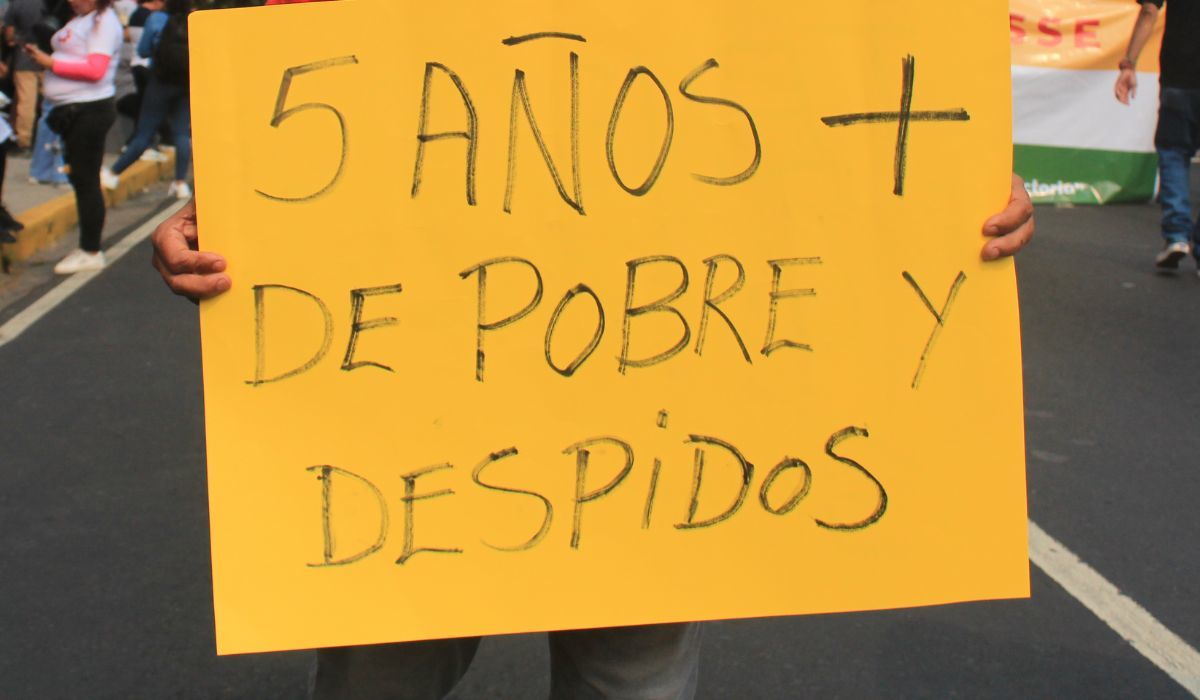 5 AÑOS +
DE POBRE Y
DESPiDOS
SSE
ctoria"